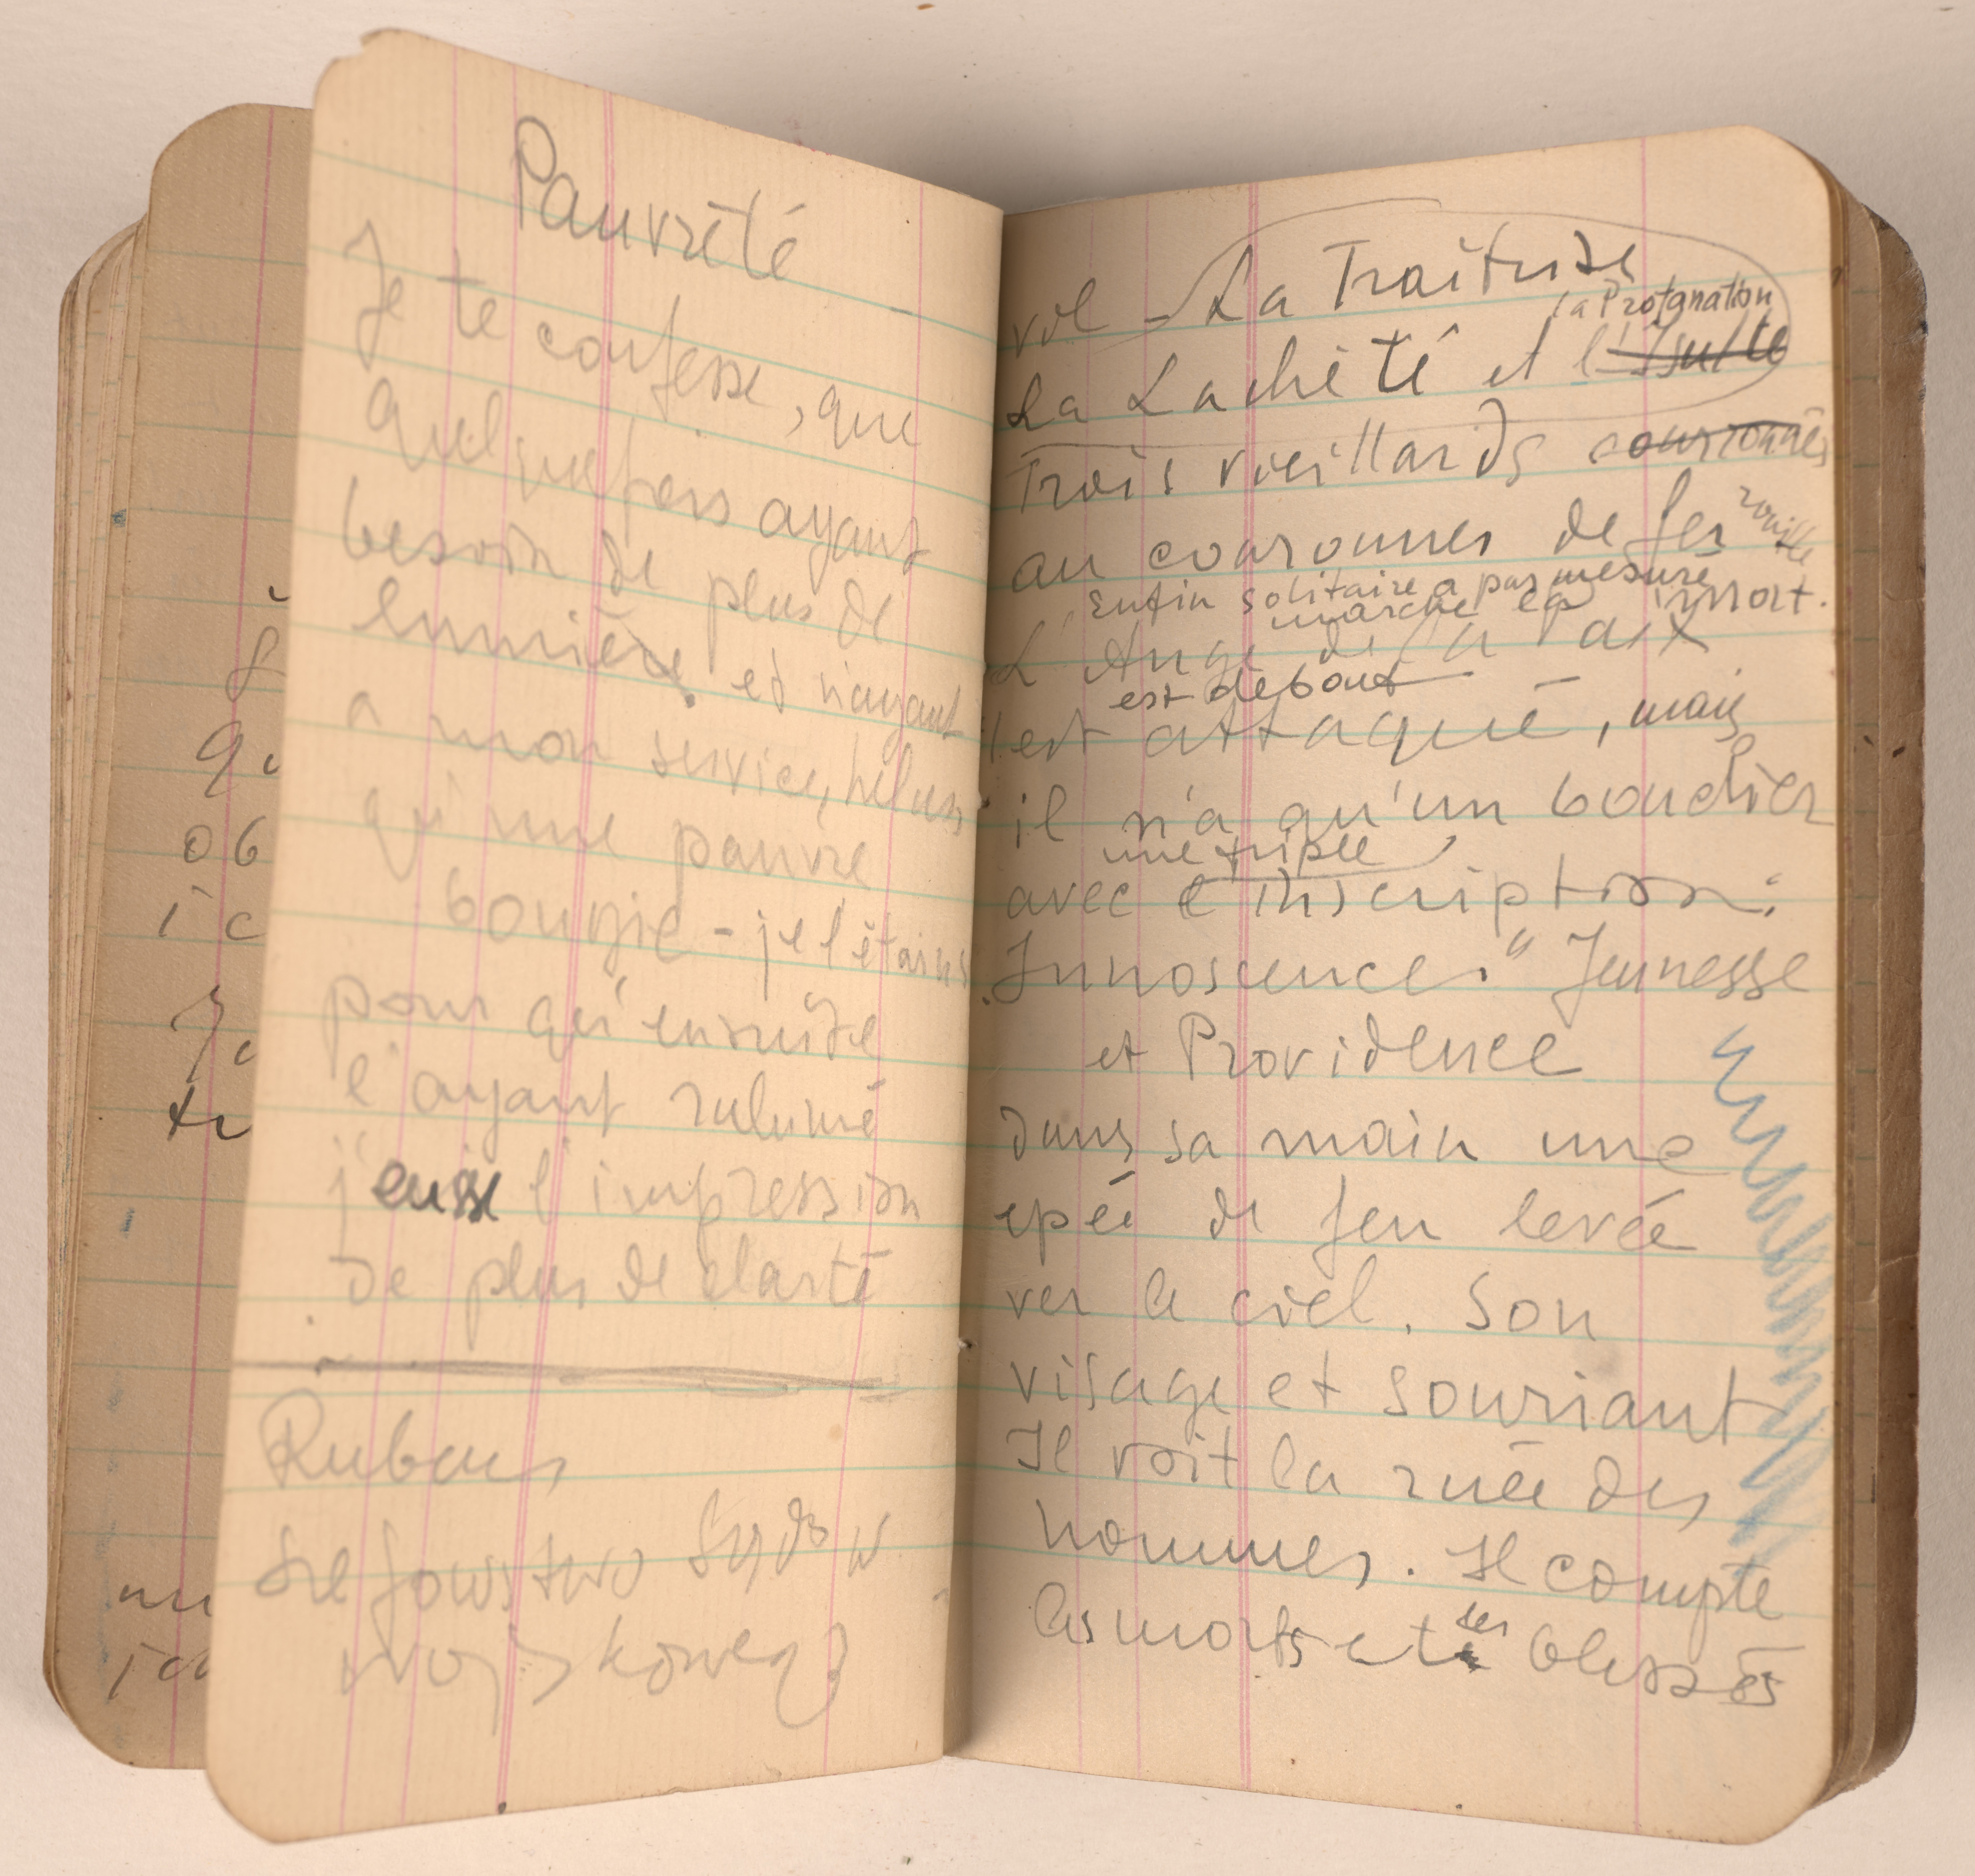 Pauvrêté
Je te confesse, que
quelquefois ayant
besoin de plus de
lumière et n'ayant
a mon service, helas
qu'une pauvre
bougie - je l'étains
pour qu'ensuite
l'ayant ralumé
j'eusse l'impression
de plus de clarté
Rubens
wojskowego
vol - La Traitrise
la Profanation
La Lachêté et l'
Trois vieillards couronnés
au couronnes de fer rouille
Enfin solitaire a pas mesuré
marche la mort.
L'Ange de la Paix
est debout
il est attaqué, mais
il n'a qu'un bouclier
une triple
avec l'inscription:
"Innoscence" Jeunesse
et Providence
dans sa main une
epée de feu levée
ver le ciel. Son
visage et souriant
Il voit la ruée des
hommes. Il compte
les morts et les blessés